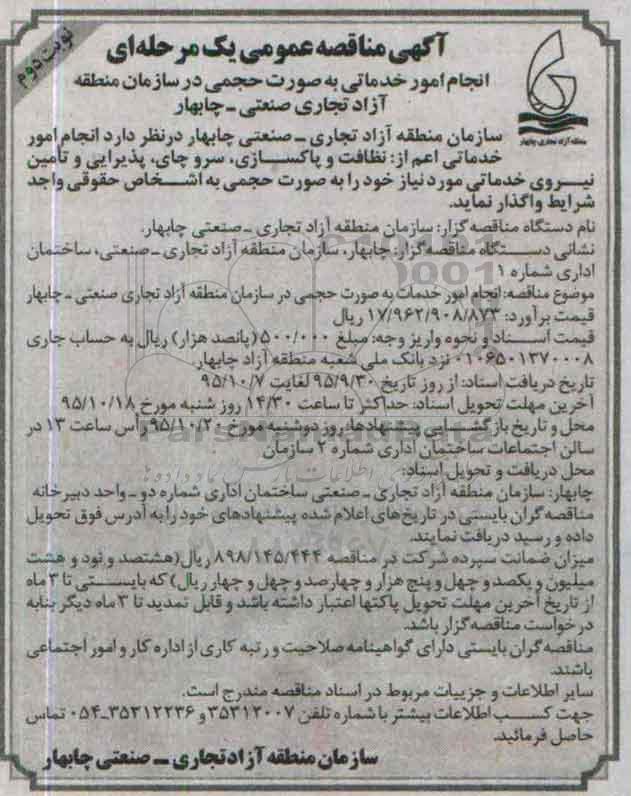 نوبت دوم
آگهی مناقصه عمومی یک مرحله‌ای
انجام امور خدماتی به صورت حجمی در سازمان منطقه
آزاد تجاری صنعتی ـ چابهار
منطقه آزاد تجاری چابهار
سازمان منطقه آزاد تجاری ـ صنعتی چابهار درنظر دارد انجام امور
خدماتی اعم از: نظافت و پاکسازی، سرو چای، پذیرایی و تأمین
نیروی خدماتی مورد نیاز خود را به صورت حجمی به اشخاص حقوقی واجد
شرایط واگذار نماید.
نام دستگاه مناقصه گزار: سازمان منطقه آزاد تجاری ـ صنعتی چابهار.
نشانی دستگاه مناقصه گزار: چابهار، سازمان منطقه آزاد تجاری ـ صنعتی، ساختمان
اداری شماره ۱
موضوع مناقصه: انجام امور خدمات به صورت حجمی در سازمان منطقه آزاد تجاری صنعتی ـ چابهار
قیمت برآورد: ۱۷/۹۶۲/۹۰۸/۸۷۳ ریال
قیمت اسناد و نحوه واریز وجه: مبلغ ۵۰۰/۰۰۰ (پانصد هزار) ریال به حساب جاری
۰۱۰۶۵۰۱۳۷۰۰۰۸ نزد بانک ملی شعبه منطقه آزاد چابهار.
تاریخ دریافت اسناد: از روز تاریخ ۹۵/۹/۳۰ لغایت ۹۵/۱۰/۷
آخرین مهلت تحویل اسناد: حداکثر تا ساعت ۱۴/۳۰ روز شنبه مورخ ۹۵/۱۰/۱۸
محل و تاریخ بازگشایی پیشنهادها: روز دوشنبه مورخ ۹۵/۱۰/۲۰ رأس ساعت ۱۳ در
سالن اجتماعات ساختمان اداری شماره ۲ سازمان
محل دریافت و تحویل اسناد:
چابهار: سازمان منطقه آزاد تجاری ـ صنعتی ساختمان اداری شماره دو ـ واحد دبیرخانه
مناقصه گران بایستی در تاریخ‌های اعلام شده پیشنهادهای خود را به آدرس فوق تحویل
داده و رسید دریافت نمایند.
میزان ضمانت سپرده شرکت در مناقصه ۸۹۸/۱۴۵/۴۴۴ ریال (هشتصد و نود و هشت
میلیون و یکصد و چهل و پنج هزار و چهارصد و چهل و چهار ریال) که بایستی تا ۳ ماه
از تاریخ آخرین مهلت تحویل پاکتها اعتبار داشته باشد و قابل تمدید تا ۳ ماه دیگر بنابه
درخواست مناقصه گزار باشد.
مناقصه گران بایستی دارای گواهینامه صلاحیت و رتبه کاری از اداره کار و امور اجتماعی
باشند.
سایر اطلاعات و جزییات مربوط در اسناد مناقصه مندرج است.
جهت کسب اطلاعات بیشتر با شماره تلفن ۳۵۳۱۲۰۰۷ و ۳۵۳۱۲۲۳۶-۰۵۴ تماس
حاصل فرمائید.
سازمان منطقه آزاد تجاری ـ صنعتی چابهار